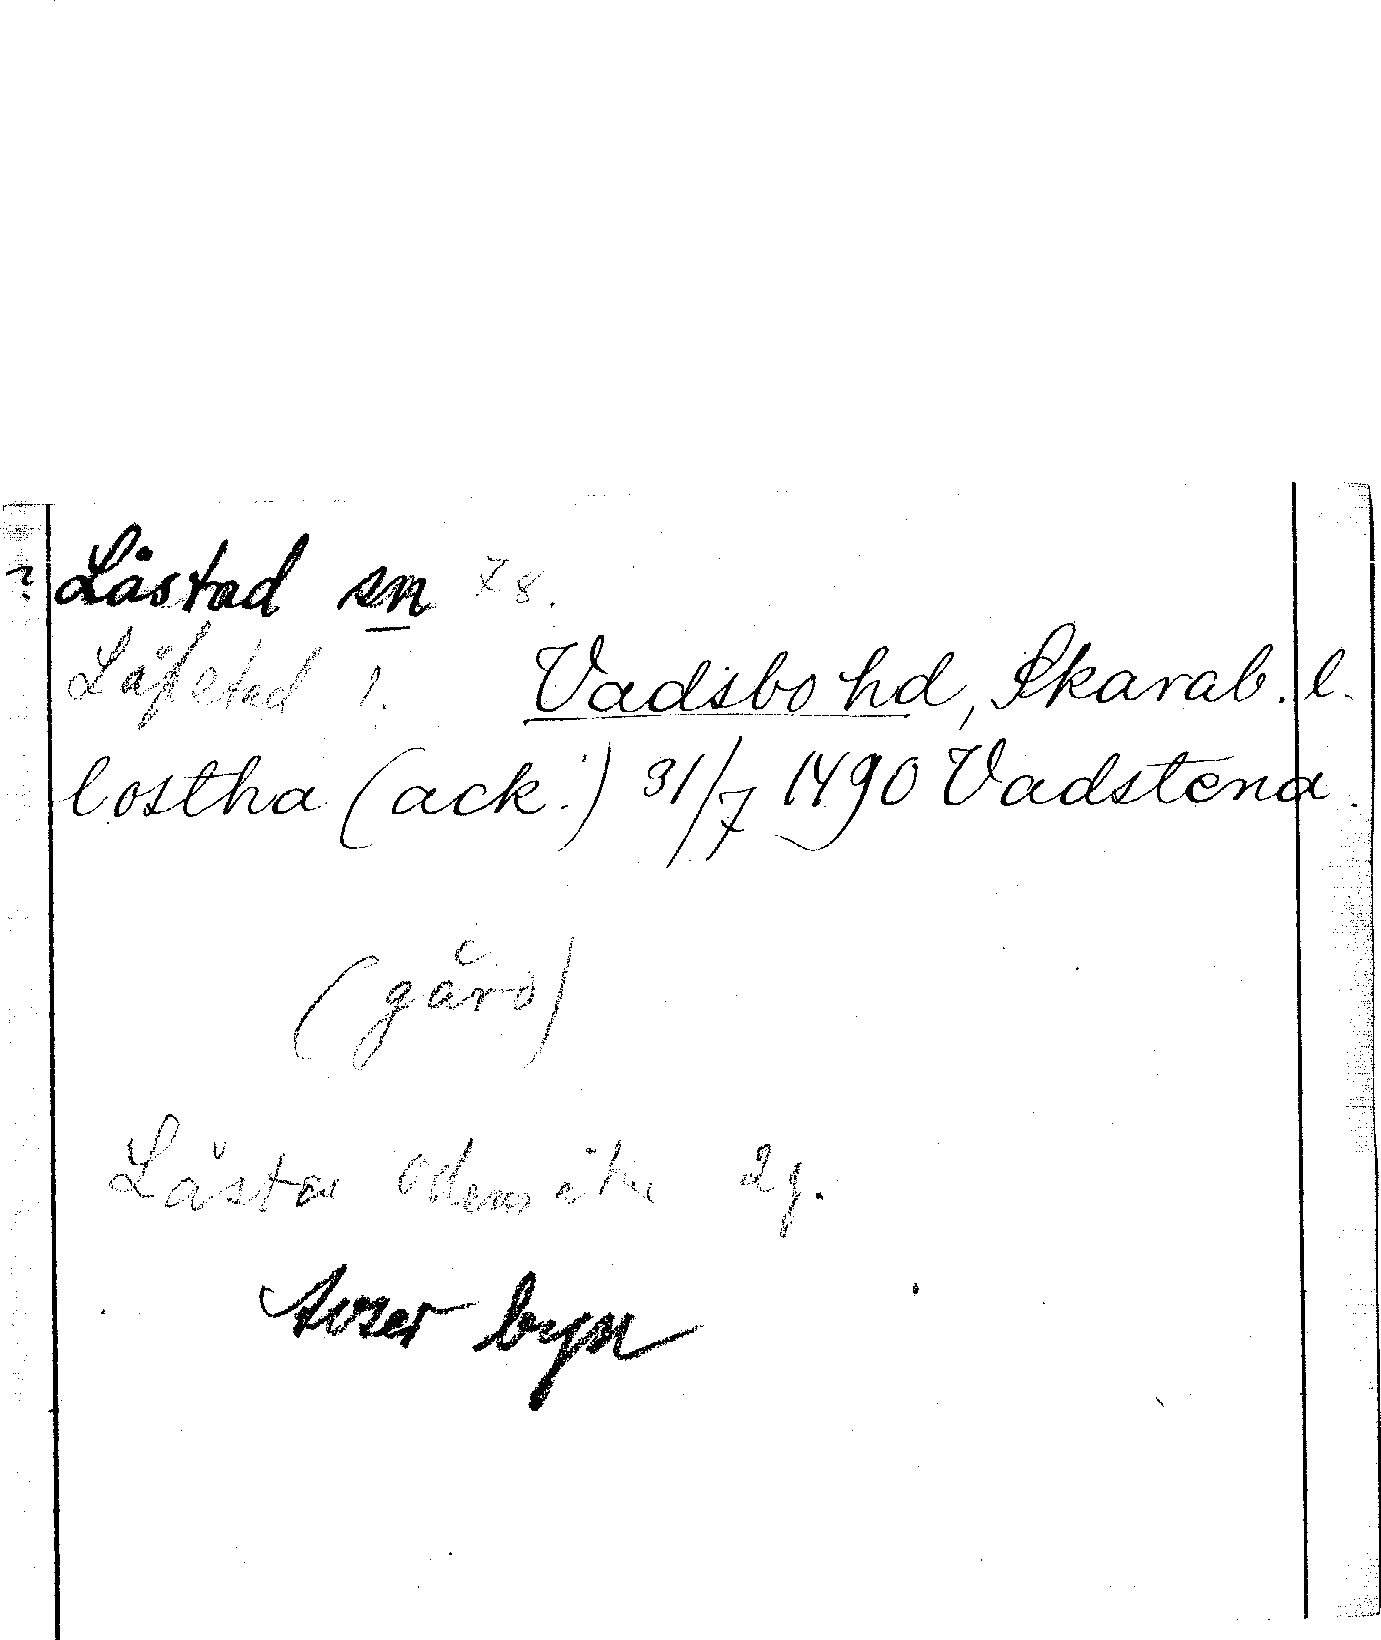 ? Låstad sn 78.
Låstad 1. Vadsbo hd, Skarab. l.
lostha (ack.) 31/7 1490 Vadstena.
(gård)
Låsta 2g.
Avser byn